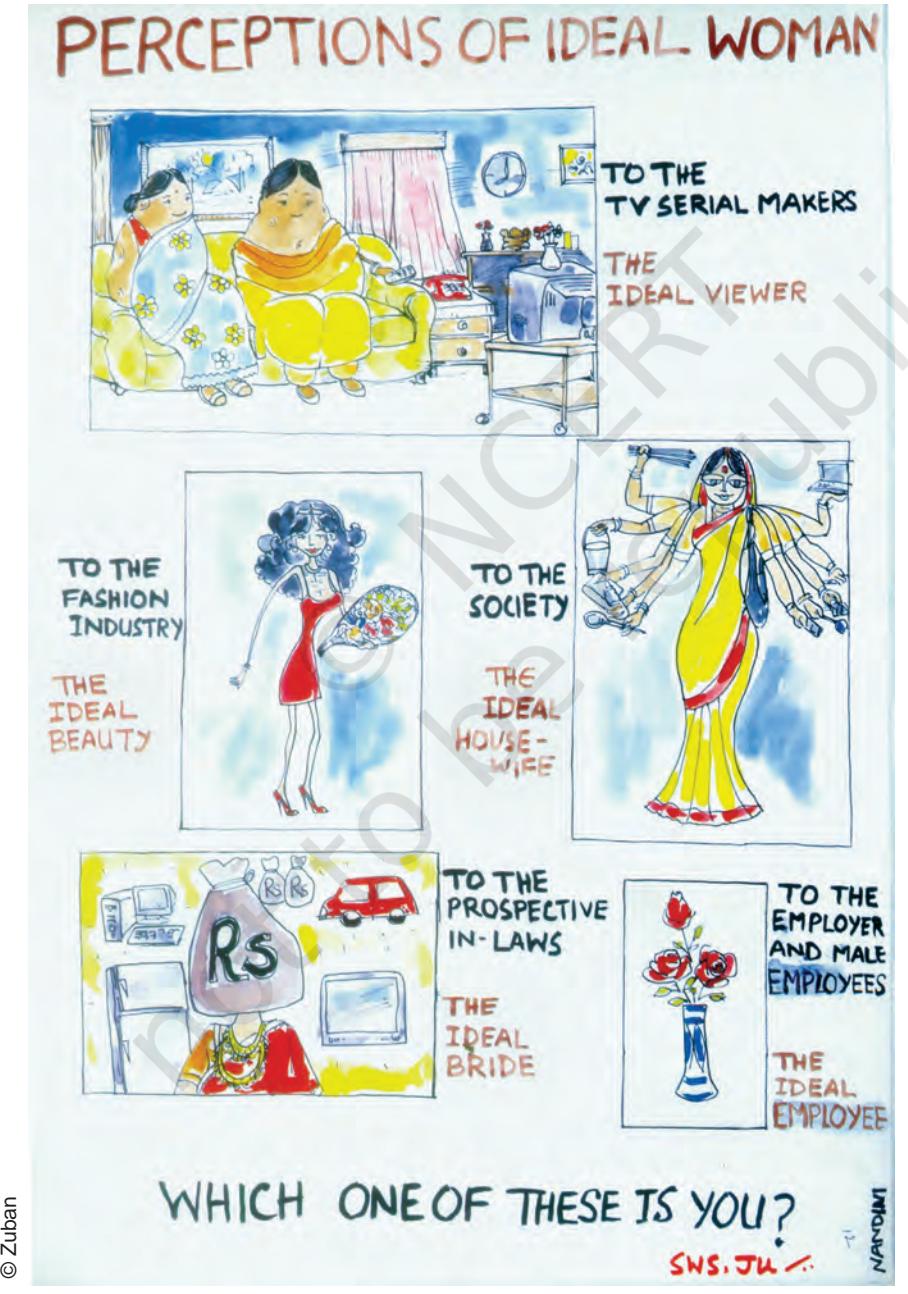 PERCEPTIONS OF IDEAL WOMAN
TO THE
TV SERIAL MAKERS
THE
IDEAL VIEWER
TO THE
FASHION
INDUSTRY
THE
IDEAL
BEAUTY
TO THE
SOCIETY
THE
IDEAL
HOUSE-
WIFE
Rs
Rs
Rs
TO THE
PROSPECTIVE
IN-LAWS
THE
IDEAL
BRIDE
TO THE
EMPLOYER
AND MALE
EMPLOYEES
THE
IDEAL
EMPLOYEE
WHICH ONE OF THESE IS YOU?
SWS. JU
NANDINI
© Zuban
© NCERT
not to be republi